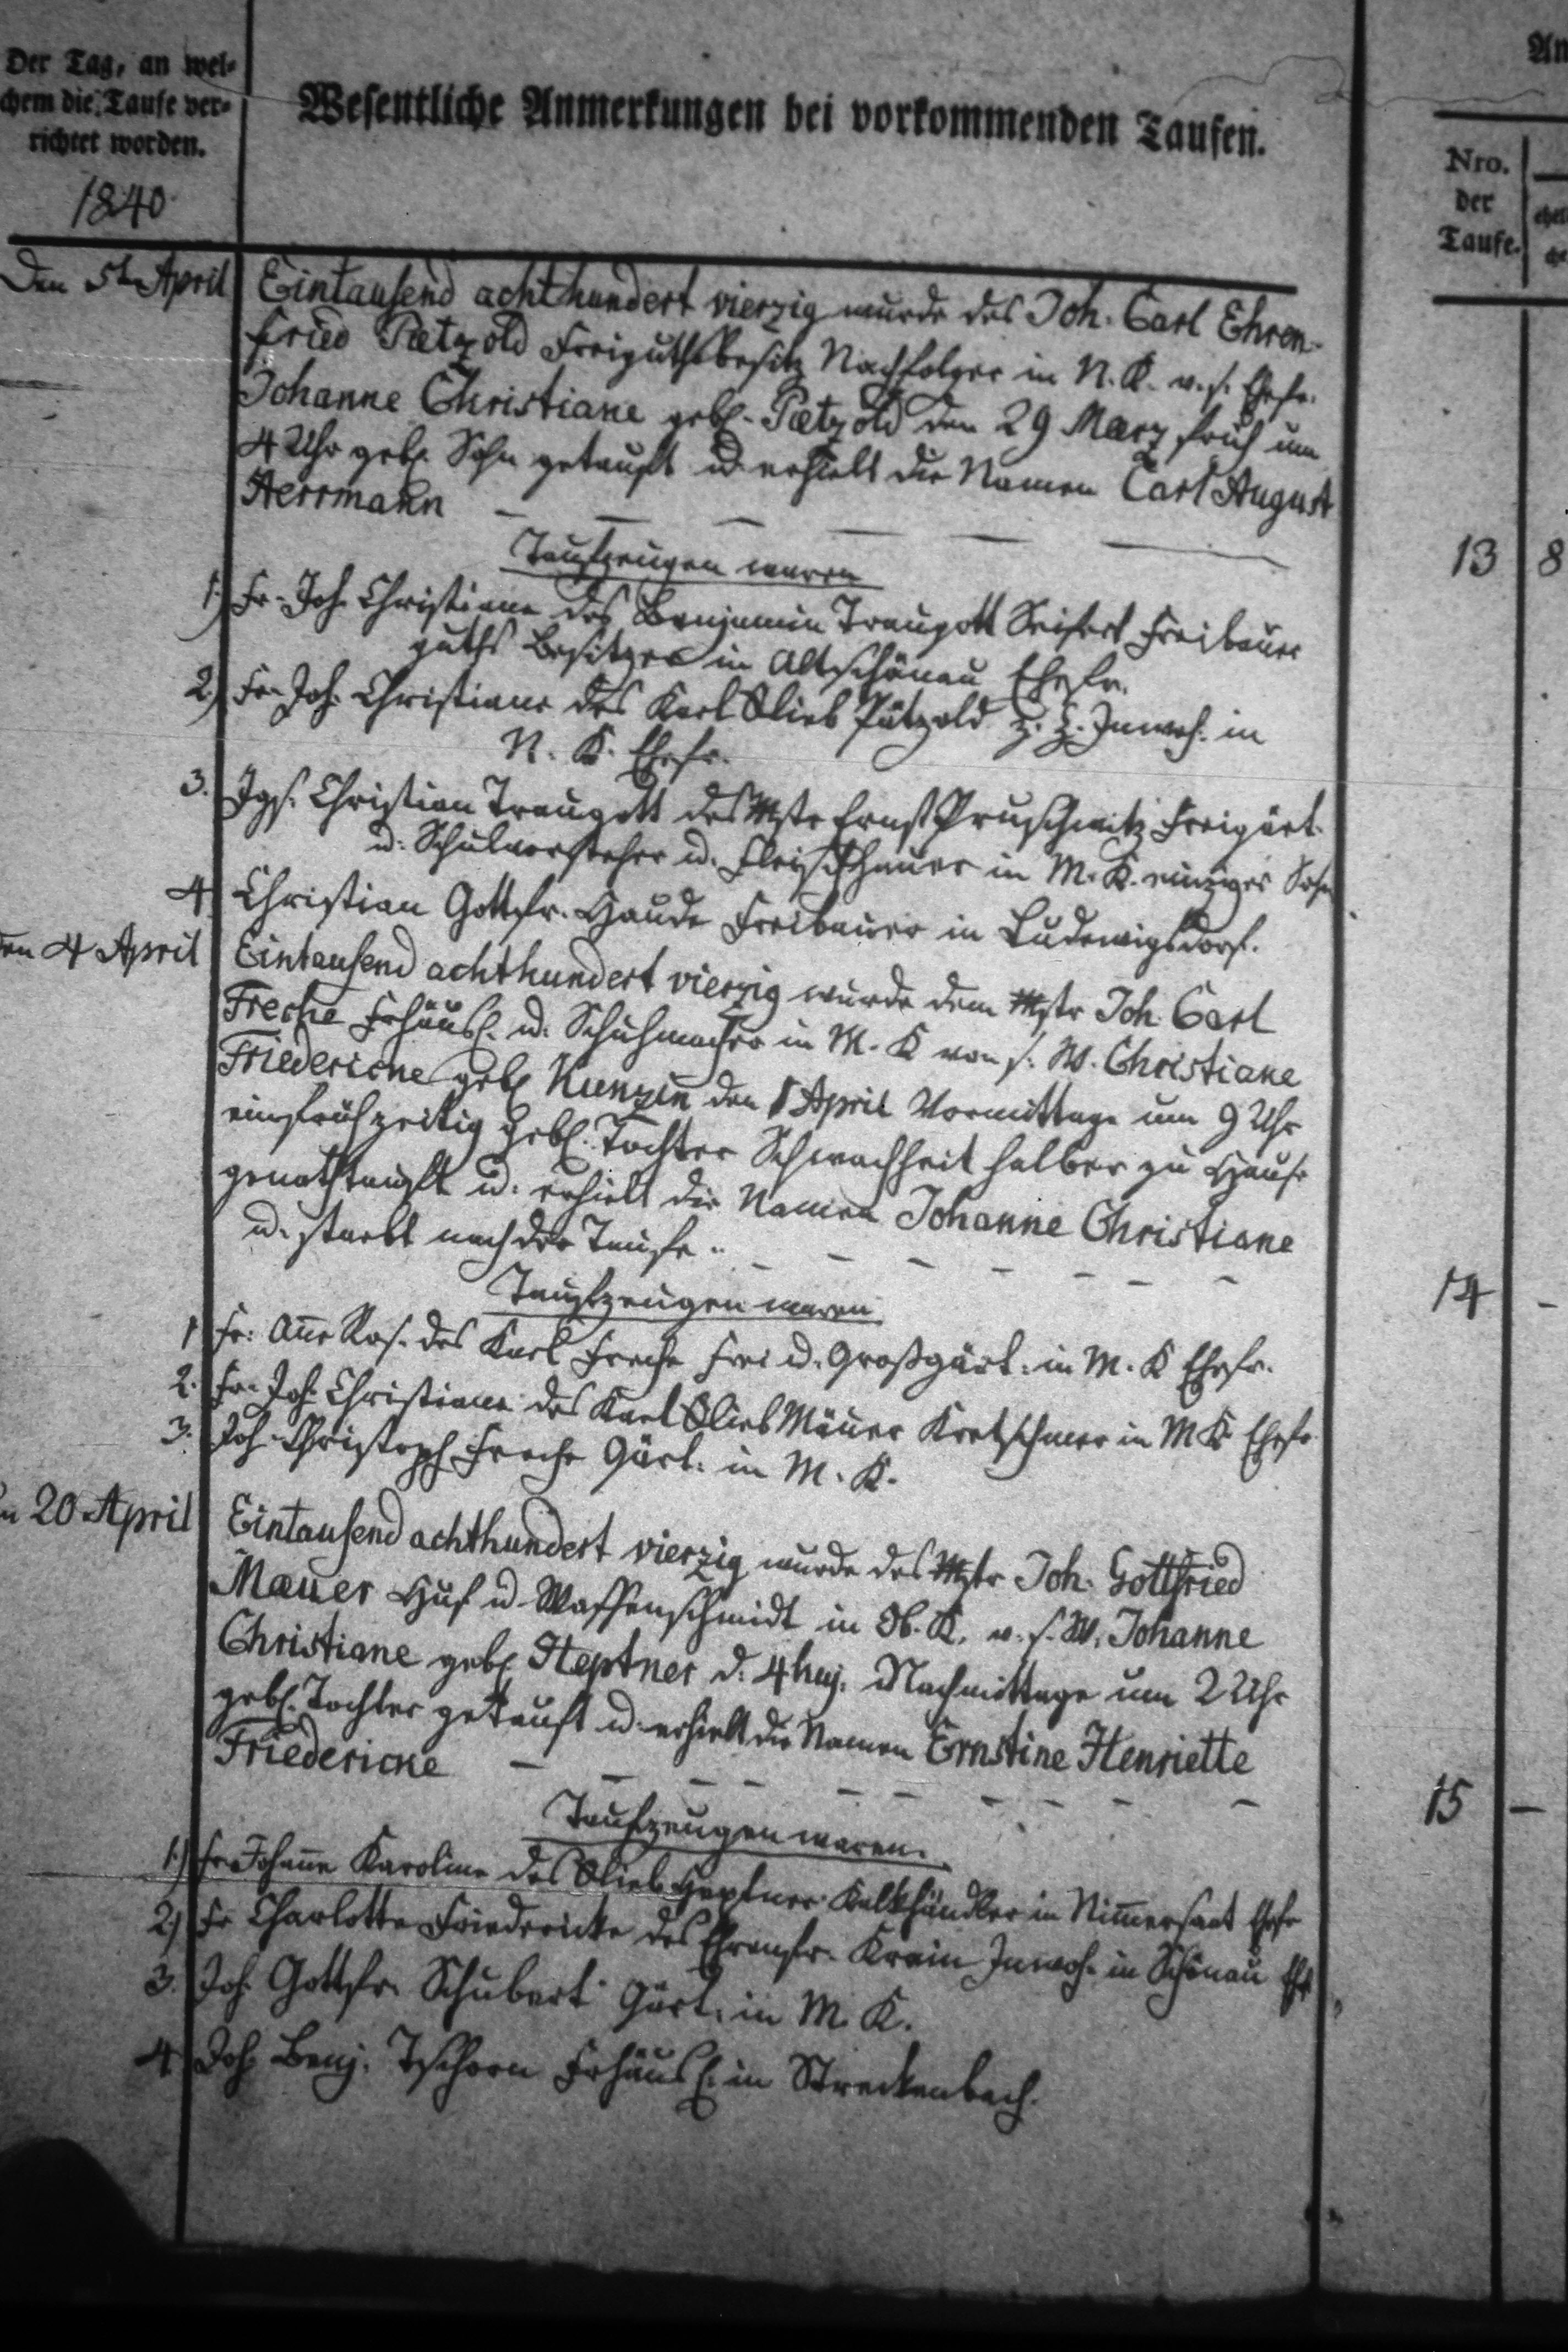 Der Tag, an wel-
chem die Taufe ver-
richtet worden.
1840
Wesentliche Anmerkungen bei vorkommenden Taufen.
Den 5ten April
Eintausend achthundert vierzig wurde des Joh. Carl Ehren-
fried Pætzold Freiguthsbesitz Nachfolger in N. K. v. s. Ehefr.
Johanne Christiane geb. Pætzold den 29 Mærz früh um
4 Uhr geb. Sohn getauft u. erhielt die Namen Carl August
Herrmann
Taufzeugen waren
1.) Fr. Joh. Christiane des Benjamin Traugott Seifert Freibauer
guths Besitzer in Altschönau Ehefr.
2.) Fr. Joh. Christiane des Karl Glieb Pätzold z. Z. Inwoh. in
N. K. Ehefr.
3. Jgs. Christian Traugott des Mstr Ernst Pruschwitz Freigärt.
u. Schulvorsteher u. Fleischhauer in M. K. einziger Sohn
4. Christian Gottfr. Haude Freibauer in Ludewigsdorf.
den 4 April
Eintausend achthundert vierzig wurde dem Mstr Joh. Carl
Freche Frhäusl. u. Schuhmacher in M. K von s. W. Christiane
Friedericke geb. Kunzin den 1 April Vormittags um 9 Uhr
ein frühzeitig geb. Tochter Schwachheit halber zu Hause
genothtauft u. erhielt die Namen Johanne Christiane
u. starb nach der Taufe.
Taufzeugen waren
1 Fr. Anne Ros. des Karl Freche Frei u. Großgärt. in M. K Ehefr.
2. Fr. Joh. Christiane des Karl Glieb Mäuer Kretschmer in M K Ehefr
3. Joh. Christoph Freche Gärt. in M. K.
20 April
Eintausend achthundert vierzig wurde des Mstr Joh. Gottfried
Mæuer Huf u. Waffenschmidt in Ob. K. v. s. W. Johanne
Christiane geb. Heptner d. 4 huj. Nachmittags um 2 Uhr
geb. Tochter getauft u. erhielt die Namen Ernstine Henriette
Friedericke
Taufzeugen waren.
1.) Fr. Johanne Karoline des Glieb Heptner Kalkhändler in Nimmersatt Ehefr
2) Fr Charlotte Friedericke des Ehrenfr. Krain Inwoh. in Schönau Ehf
3. Joh. Gottfr. Schubert Gärt. in M. K.
4 Joh. Benj. Tschorn Frhäusl. in Streckenbach.
Nro.
der
Taufe.
13 8
14 -
15 -